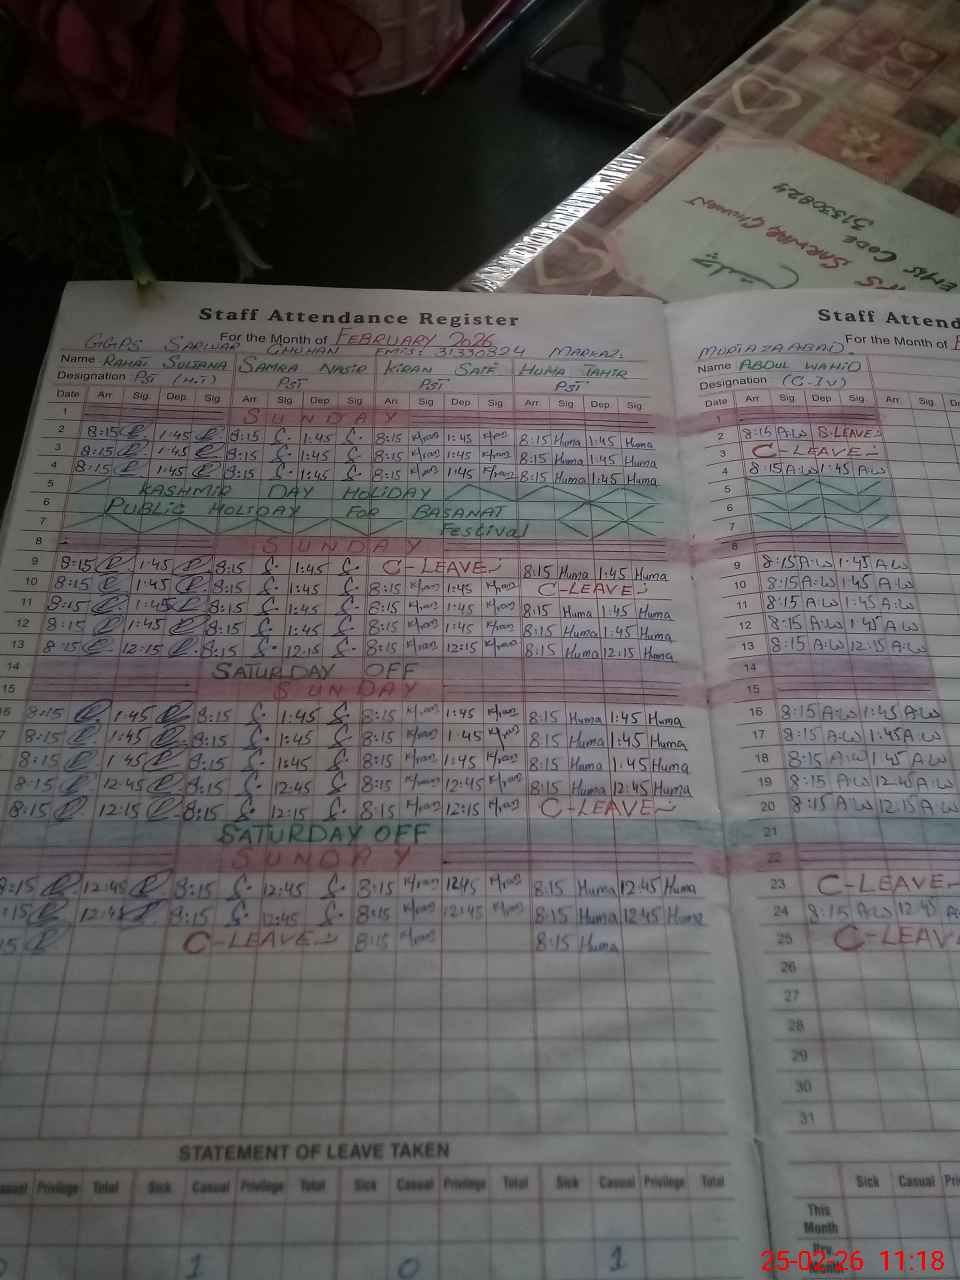 EMIS CODE 31330824
SARWAR CHUHAN
Staff Attendance Register
For the Month of FEBRUARY 2026
GGPS SARWAR CHUHAN EMIS: 31330824 MARKAZ:
Name RAHAT SULTANA SAMRA NASIR KIRAN SAIF HUMA TAHIR
Designation PST (H.T) PST PST PST
Date Arr. Sig. Dep. Sig. Arr. Sig. Dep. Sig. Arr. Sig. Dep. Sig. Arr. Sig. Dep. Sig.
1 SUNDAY
2 8:15 1:45 8:15 S. 1:45 S. 8:15 Kiran 1:45 Kiran 8:15 Huma 1:45 Huma
3 8:15 1:45 8:15 S. 1:45 S. 8:15 Kiran 1:45 Kiran 8:15 Huma 1:45 Huma
4 8:15 1:45 8:15 S. 1:45 S. 8:15 Kiran 1:45 Kiran 8:15 Huma 1:45 Huma
5 KASHMIR DAY HOLIDAY
6 PUBLIC HOLIDAY FOR BASANAT
7 Festival
8 SUNDAY
9 8:15 1:45 8:15 S. 1:45 S. C-LEAVE 8:15 Huma 1:45 Huma
10 8:15 1:45 8:15 S. 1:45 S. 8:15 Kiran 1:45 Kiran C-LEAVE
11 8:15 1:45 8:15 S. 1:45 S. 8:15 Kiran 1:45 Kiran 8:15 Huma 1:45 Huma
12 8:15 1:45 8:15 S. 1:45 S. 8:15 Kiran 1:45 Kiran 8:15 Huma 1:45 Huma
13 8:15 12:15 8:15 S. 12:15 S. 8:15 Kiran 12:15 Kiran 8:15 Huma 12:15 Huma
14 SATURDAY OFF
15 SUNDAY
16 8:15 1:45 8:15 S. 1:45 S. 8:15 Kiran 1:45 Kiran 8:15 Huma 1:45 Huma
7 8:15 1:45 8:15 S. 1:45 S. 8:15 Kiran 1:45 Kiran 8:15 Huma 1:45 Huma
8:15 1:45 8:15 S. 1:45 S. 8:15 Kiran 1:45 Kiran 8:15 Huma 1:45 Huma
8:15 12:45 8:15 S. 12:45 S. 8:15 Kiran 12:45 Kiran 8:15 Huma 12:45 Huma
8:15 12:15 8:15 S. 12:15 S. 8:15 Kiran 12:15 Kiran C-LEAVE
SATURDAY OFF
SUNDAY
8:15 12:45 8:15 S. 12:45 S. 8:15 Kiran 1245 Kiran 8:15 Huma 12:45 Huma
:15 12:45 8:15 S. 12:45 S. 8:15 Kiran 12:45 Kiran 8:15 Huma 12:45 Huma
15 C-LEAVE 8:15 Kiran 8:15 Huma
STATEMENT OF LEAVE TAKEN
Casual Privilege Total Sick Casual Privilege Total Sick Casual Privilege Total Sick Casual Privilege Total
0 1 0 1
Staff Attend
For the Month of F
MURTAZAABAD.
Name ABDUL WAHID
Designation (C-IV)
Date Arr. Sig. Dep. Sig.
1
2 8:15 A.W S.LEAVE
3 C-LEAVE
4 8:15 A.W 1:45 A.W
5
6
7
8
9 8:15 A.W 1:45 A.W
10 8:15 A.W 1:45 A.W
11 8:15 A.W 1:45 A.W
12 8:15 A.W 1:45 A.W
13 8:15 A.W 12:15 A.W
14
15
16 8:15 A.W 1:45 A.W
17 8:15 A.W 1:45 A.W
18 8:15 A.W 1:45 A.W
19 8:15 A.W 12:45 A.W
20 8:15 A.W 12:15 A.W
21
22
23 C-LEAVE
24 8:15 A.W 12:45 A
25 C-LEAV
26
27
28
29
30
31
Sick Casual Pri
This Month
25-02-26 11:18